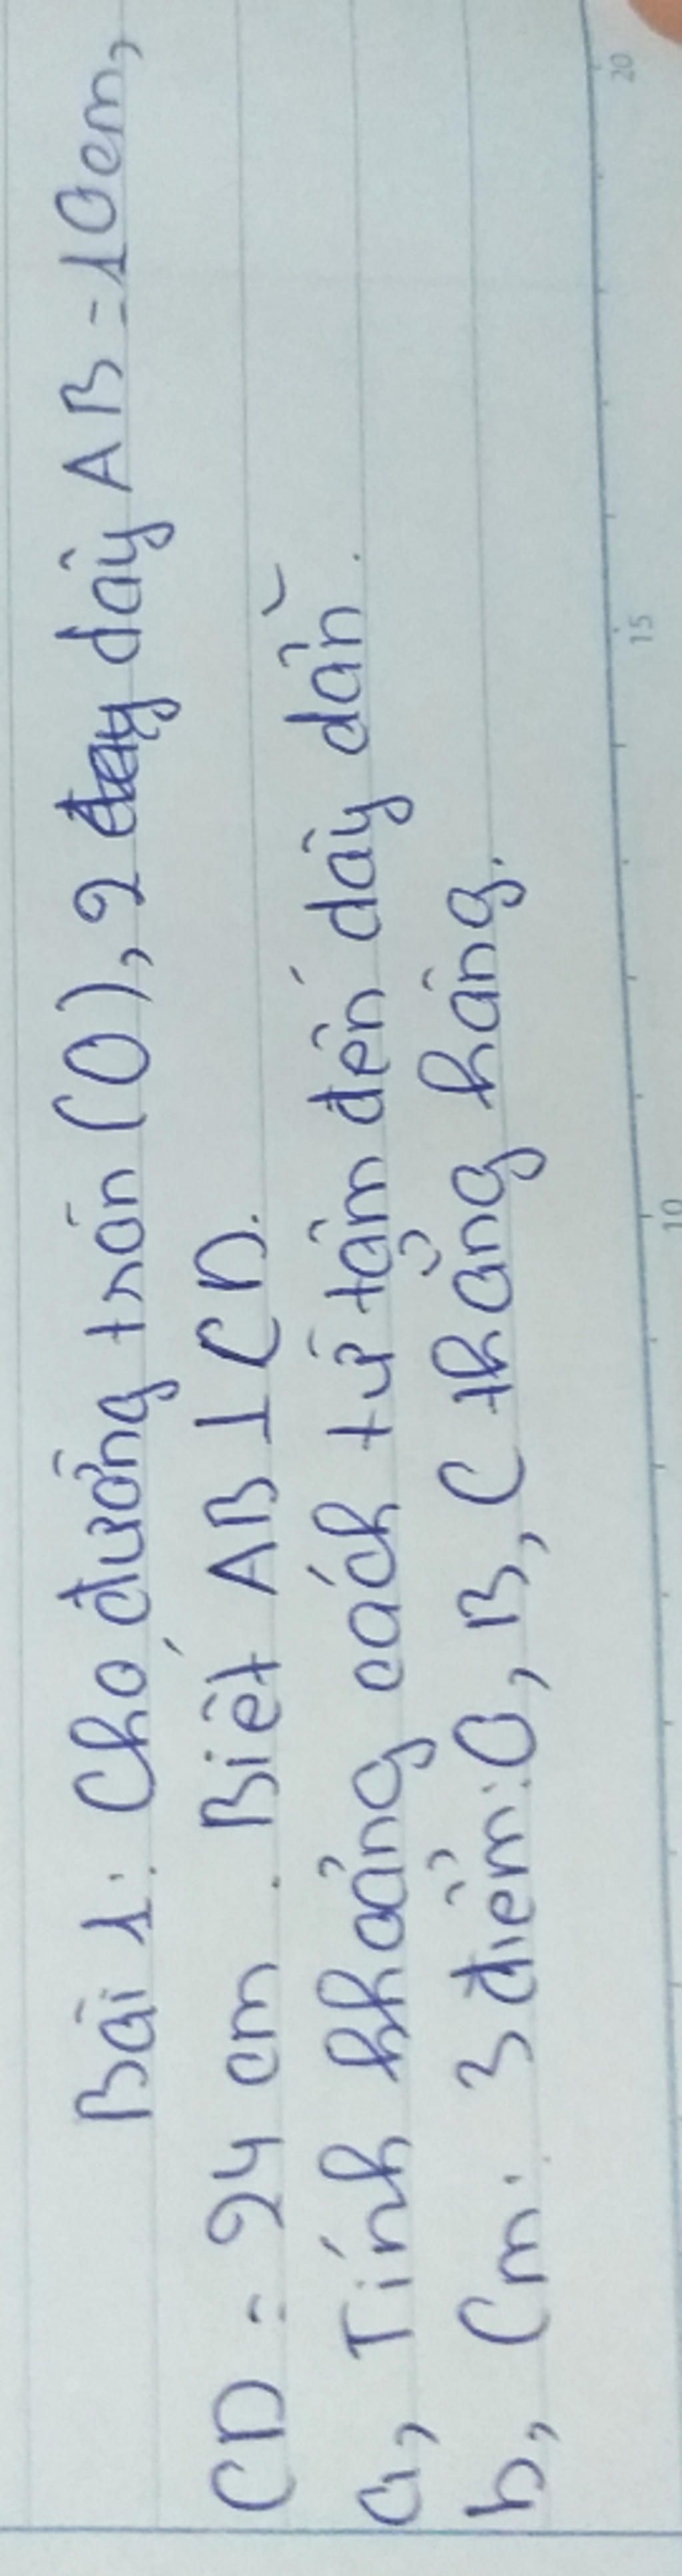 Bài 1: Cho đường tròn (O), 2 dây dây AB = 10cm,
CD = 24 cm. Biết AB ⊥ CD.
a, Tính khoảng cách từ tâm đến dây dẫn.
b, Cm: 3 điểm: O, B, C thẳng hàng.
20
15
10